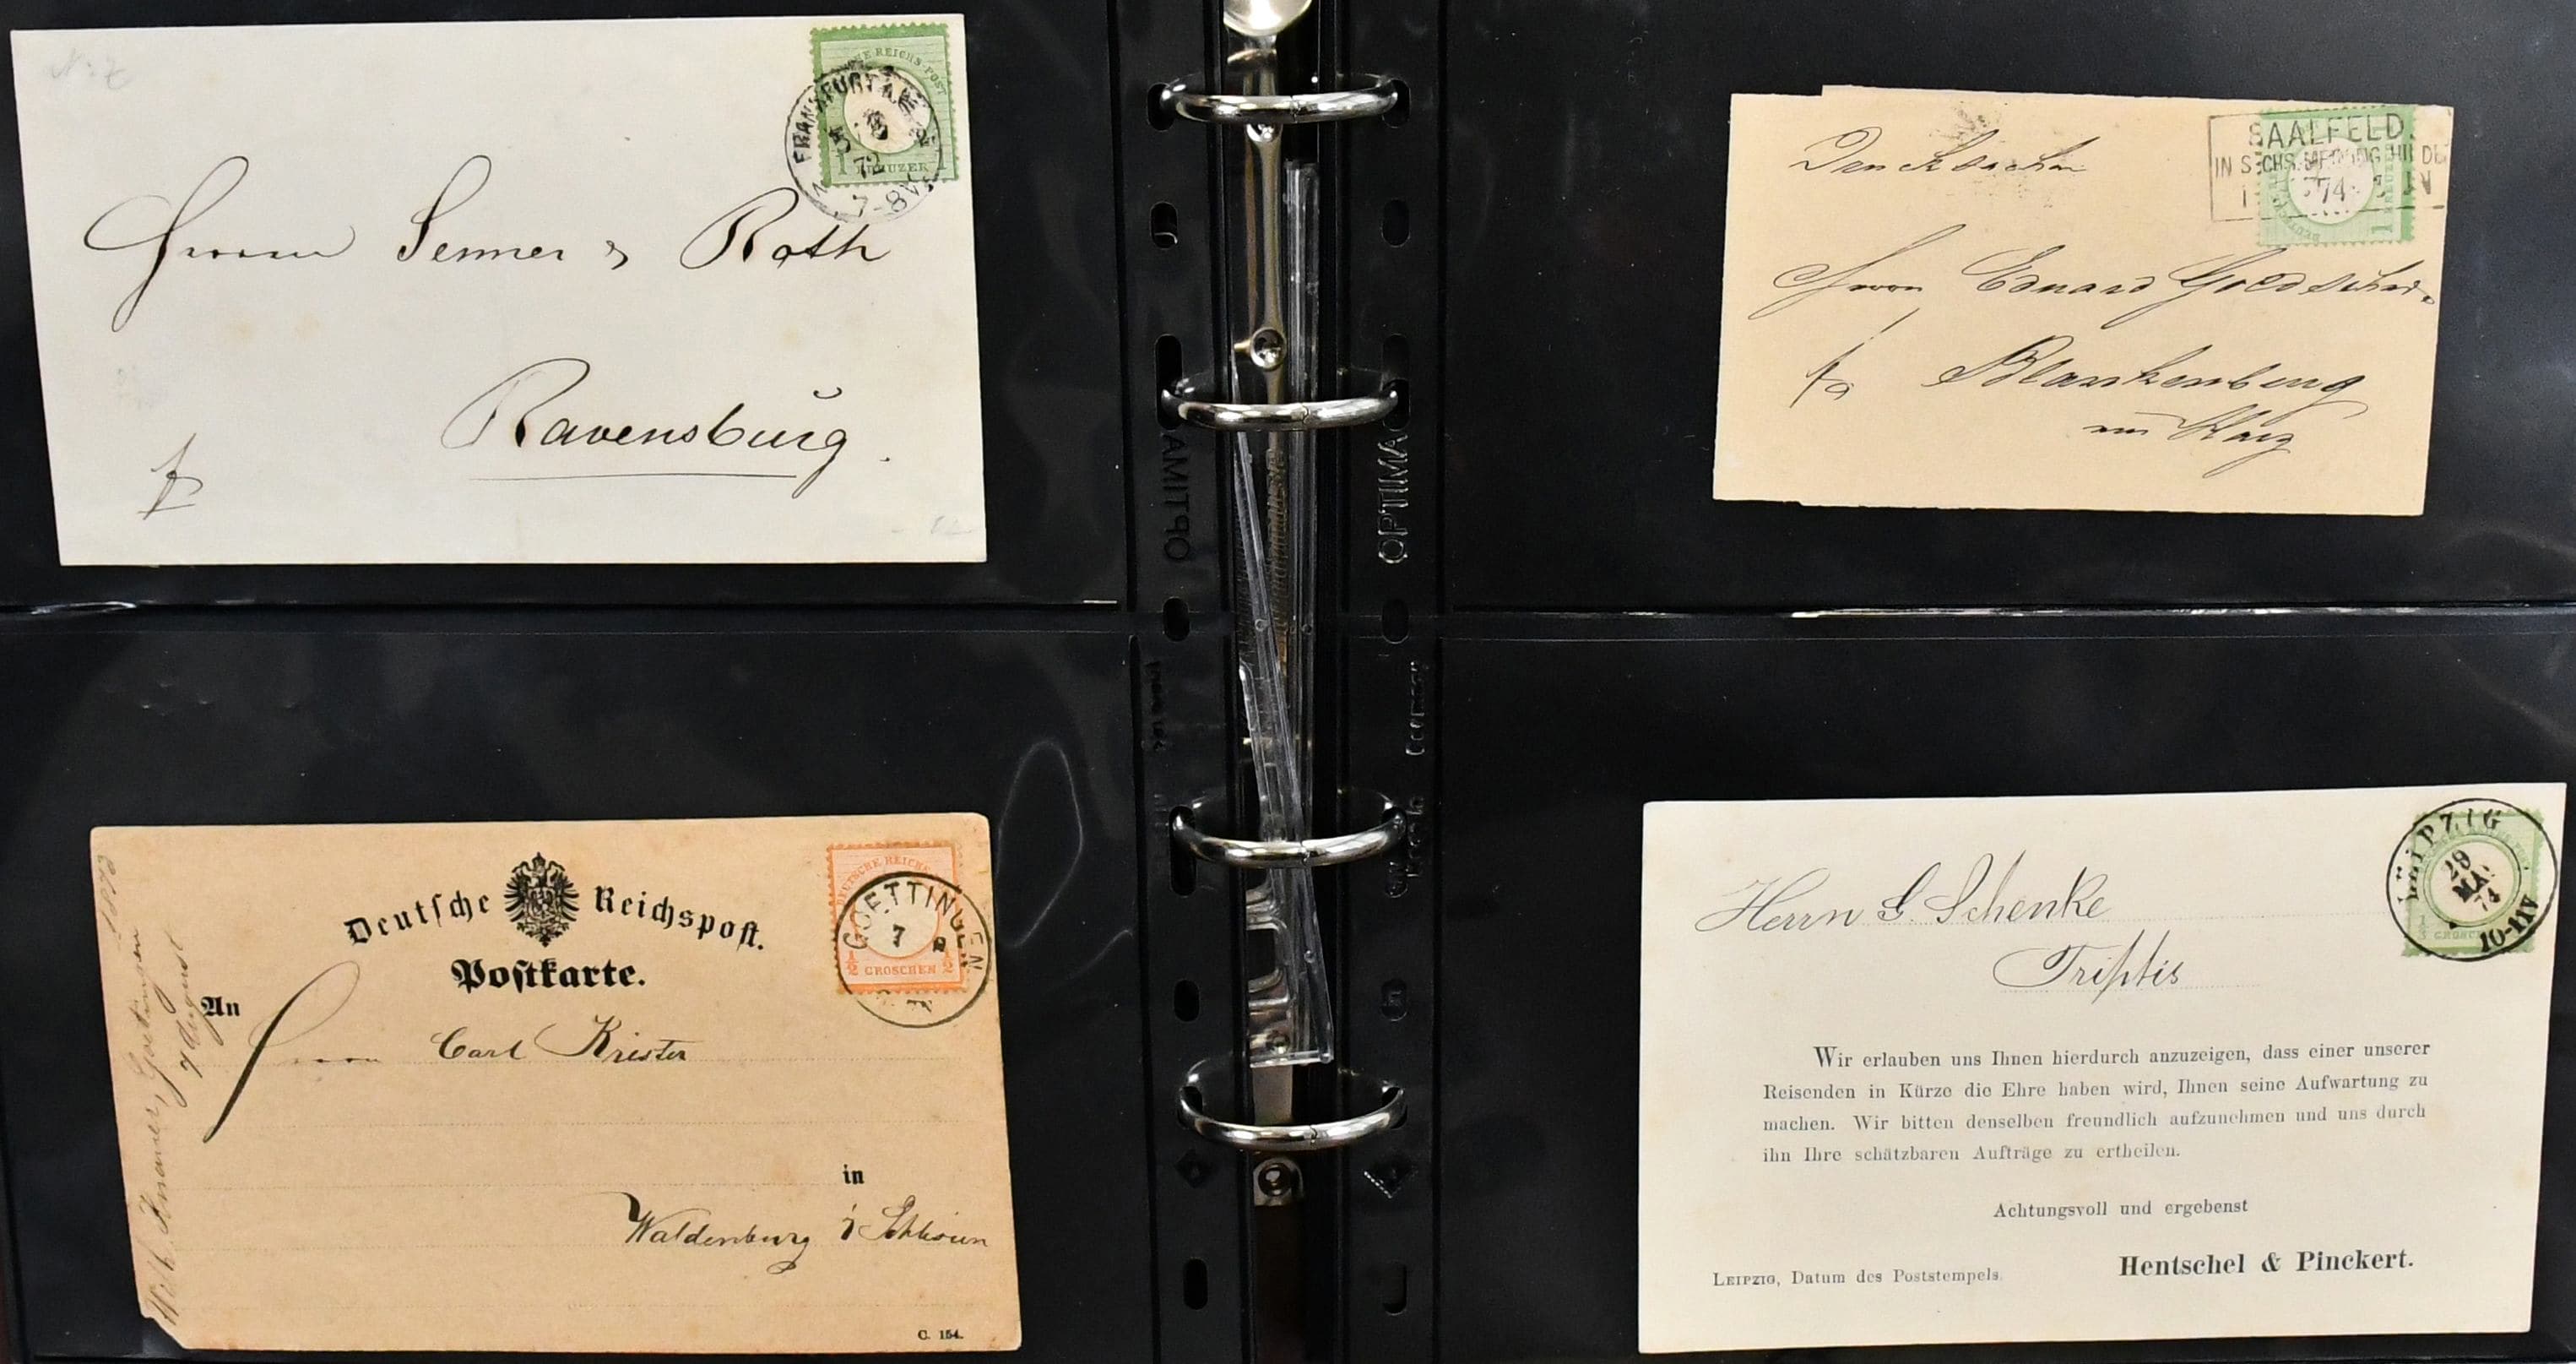 DEUTSCHE REICHS-POST
1 KREUZER 1
FRANKFURT A.M.
72
7-8 V.
Herren Senner & Roth
Ravensburg.
fr
SAALFELD.
IN SACHS. MEINING-HILDB
74
1 KREUZER
Drucksachen
Herrn Eduard Goldschm.
fr Blankenburg
am Harz
OPTIMA
OPTIMA
Deutsche Reichspost.
Postkarte.
DEUTSCHE REICHS
½ GROSCHEN ½
GOETTINGEN
7 8
An
Herrn Carl Krister
in
Waldenburg i/ Schlesien
C. 154.
Goettingen
7 August
1873
LEIPZIG
29
MAI
74
10-11 V
Herrn G. Schenke
Triptis
Wir erlauben uns Ihnen hierdurch anzuzeigen, dass einer unserer
Reisenden in Kürze die Ehre haben wird, Ihnen seine Aufwartung zu
machen. Wir bitten denselben freundlich aufzunehmen und uns durch
ihn Ihre schätzbaren Aufträge zu ertheilen.
Achtungsvoll und ergebenst
Hentschel & Pinckert.
LEIPZIG, Datum des Poststempels.